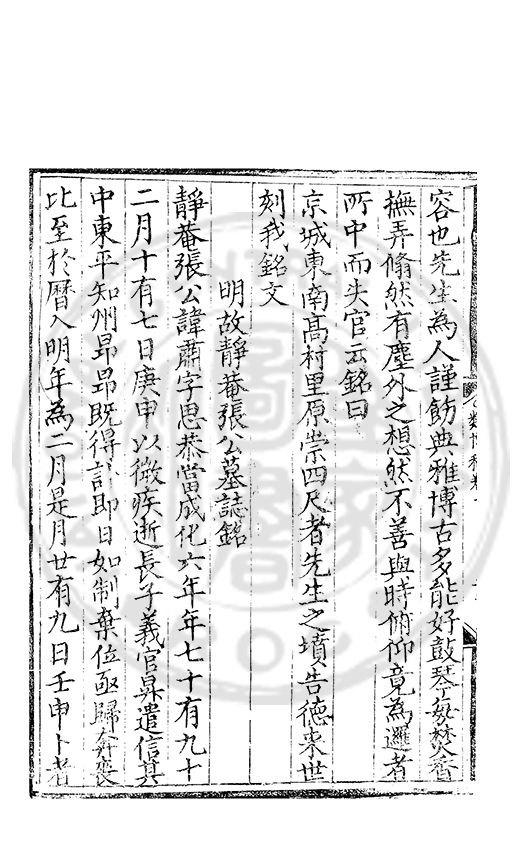 容也先生為人謹飭典雅博古多能好鼓琴每焚香
撫弄翛然有塵外之想然不善與時俯仰竟為邏者
所中而失官云銘曰
京城東南高村里原崇四尺者先生之墳告德來世
刻我銘文
明故靜菴張公墓誌銘
靜菴張公諱肅字思恭當成化六年年七十有九十
二月十有七日庚申以微疾逝長子義官昇遣信冥
中東平知州昂昂既得訃即日如制棄位亟歸奔喪
比至於曆入明年為二月是月廿有九日壬申卜者